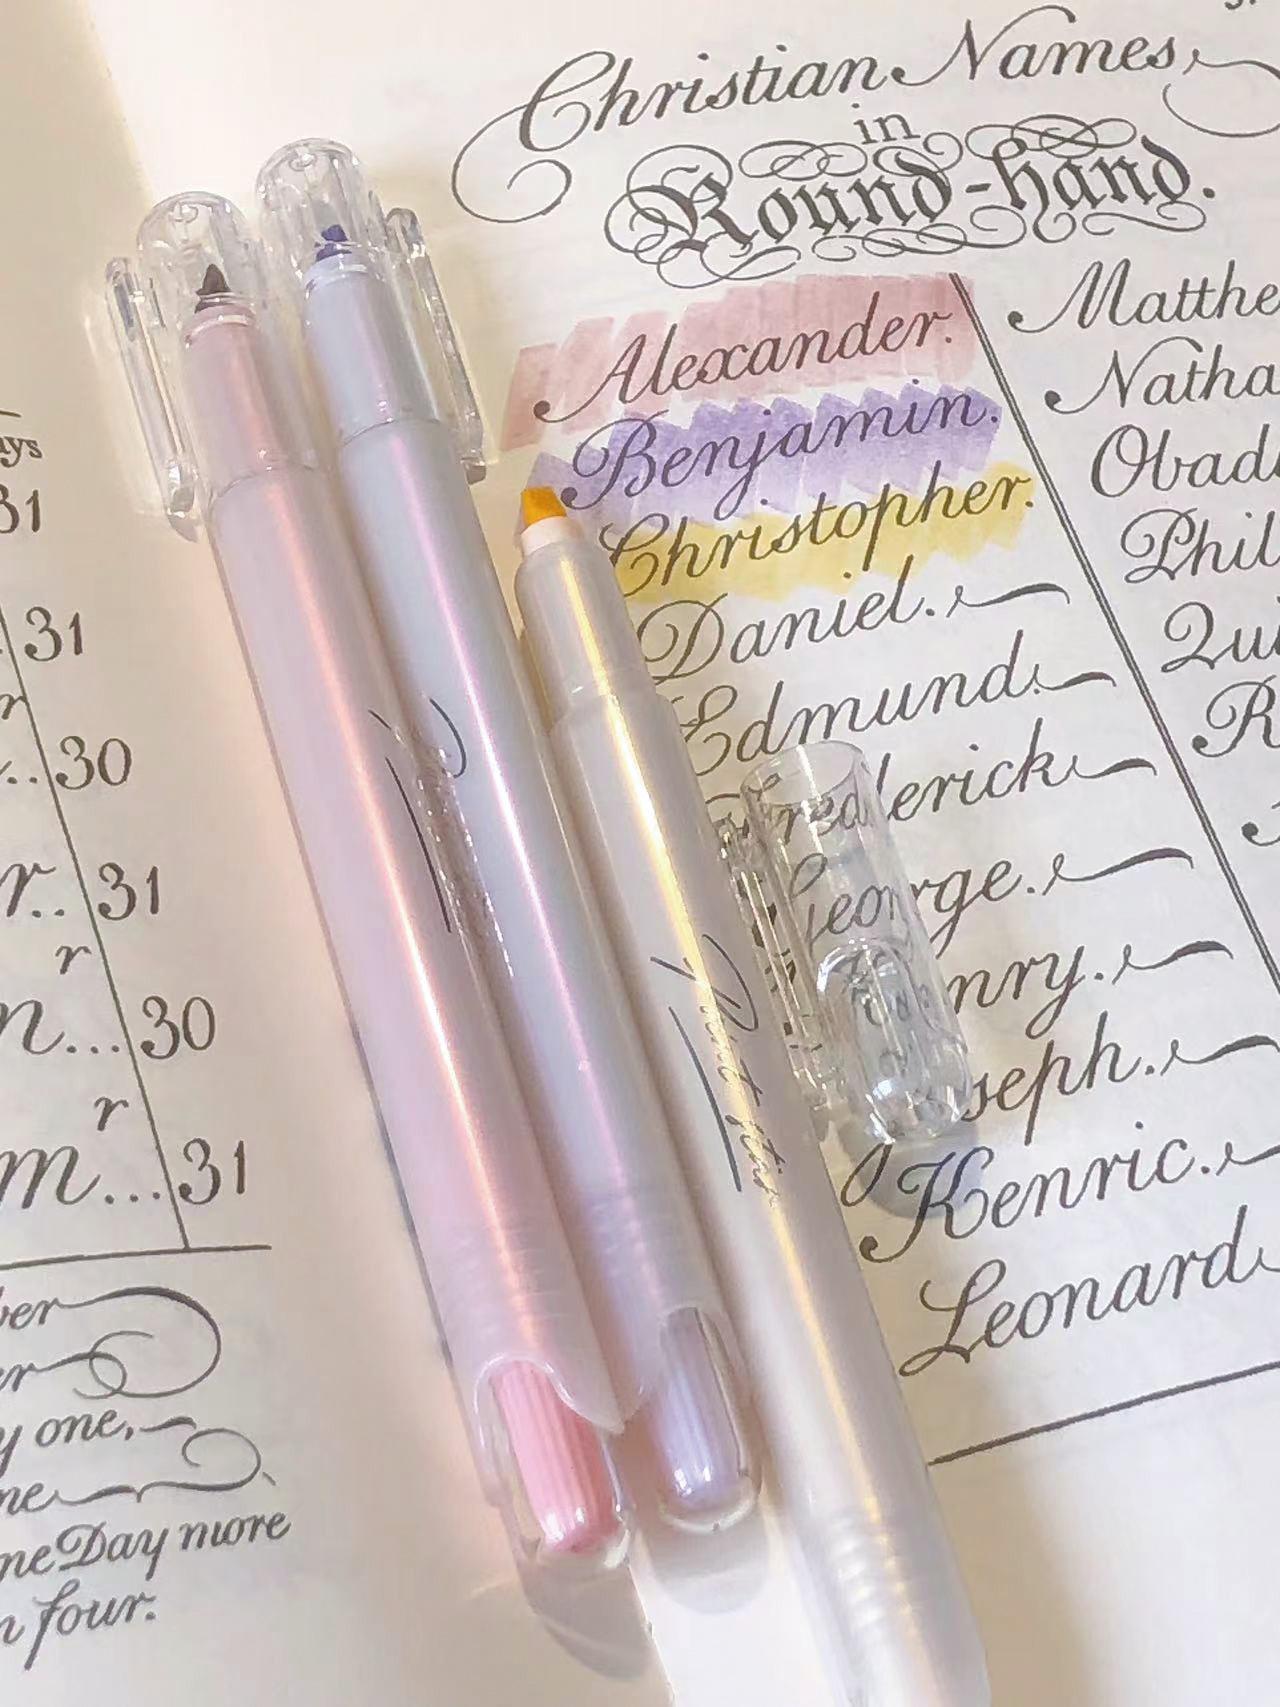 31
31
30
r.. 31
r
n... 30
r
m... 31
y one,
ne Day more
four.
Christian Names
in
Round-hand.
Alexander.
Benjamin.
Christopher.
Daniel.
Edmund.
Frederick
George.
nry.
seph.
Kenric.
Leonard
Matthe
Natha
Obad
Phil
Qui
R